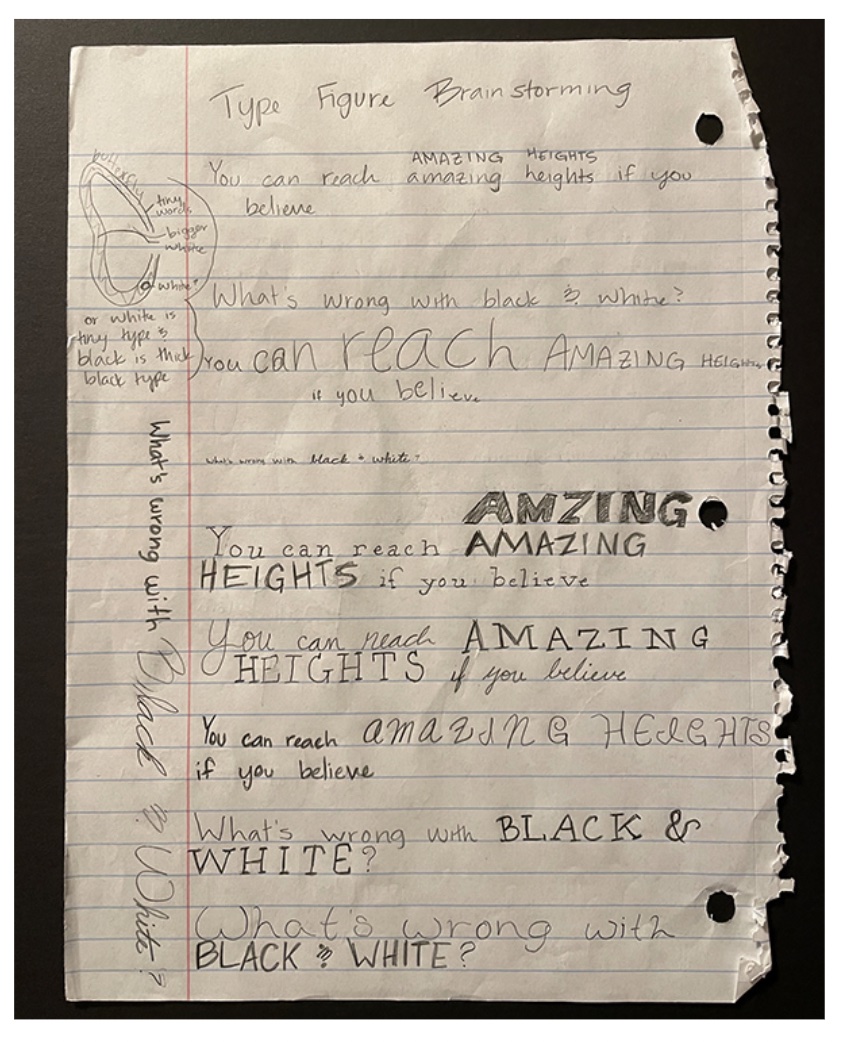 Type Figure Brainstorming
AMAZING HEIGHTS
You can reach amazing heights if you
believe
butterfly
tiny
words
bigger
white
white?
or white is
tiny type &
black is thick
black type
What's wrong with black & white?
You can reach AMAZING HEIGHTS
if you believe
What's wrong with black & white?
AMZING
You can reach AMAZING
HEIGHTS if you believe
You can reach AMAZING
HEIGHTS if you believe
You can reach amazing HEIGHTS
if you believe
What's wrong with BLACK &
WHITE?
What's wrong with
BLACK & WHITE?
What's wrong with Black & White?